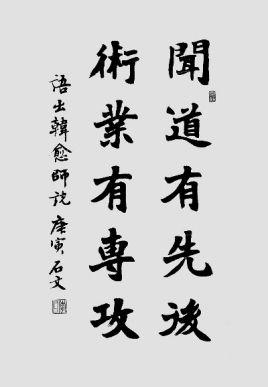 聞道有先後
術業有專攻
語出韓愈師說 庚寅 石文